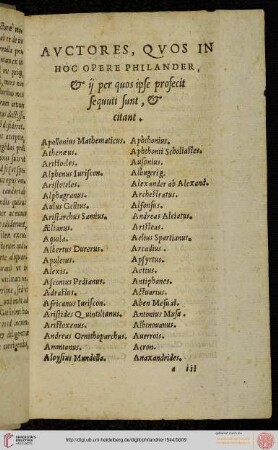 AVCTORES, QVOS IN
HOC OPERE PHILANDER,
& ij per quos ipse profecit
sequuti sunt, &
citant.
Apollonius Mathematicus.
Athenæus.
Aristocles.
Alphenus Iuriscon.
Aristoteles.
Alphagranus.
Aulus Gellius.
Aristarchus Samius.
Ælianus.
Aquila.
Albertus Durerus.
Apuleius.
Alexis.
Asconius Pedianus.
Adrastus.
Africanus Iuriscon.
Aristides Quintilianus.
Aristoxenus.
Andreas Ornithoparchus.
Ammianus.
Aloysius Mundella.
Aphthonius.
Aphthonii Scholiastes.
Ausonius.
Albugerig.
Alexander ab Alexand.
Archestratus.
Alfonsus.
Andreas Alciatus.
Aristeas.
Aelius Spartianus.
Arcadius.
Apsyrtus.
Aetius.
Antiphanes.
Actuarius.
Aben Mesuat.
Antonius Musa.
Albinouanus.
Auerrois.
Acron.
Anaxandrides.
a iii
http://digi.ub.uni-heidelberg.de/diglit/philandrier1544/0009